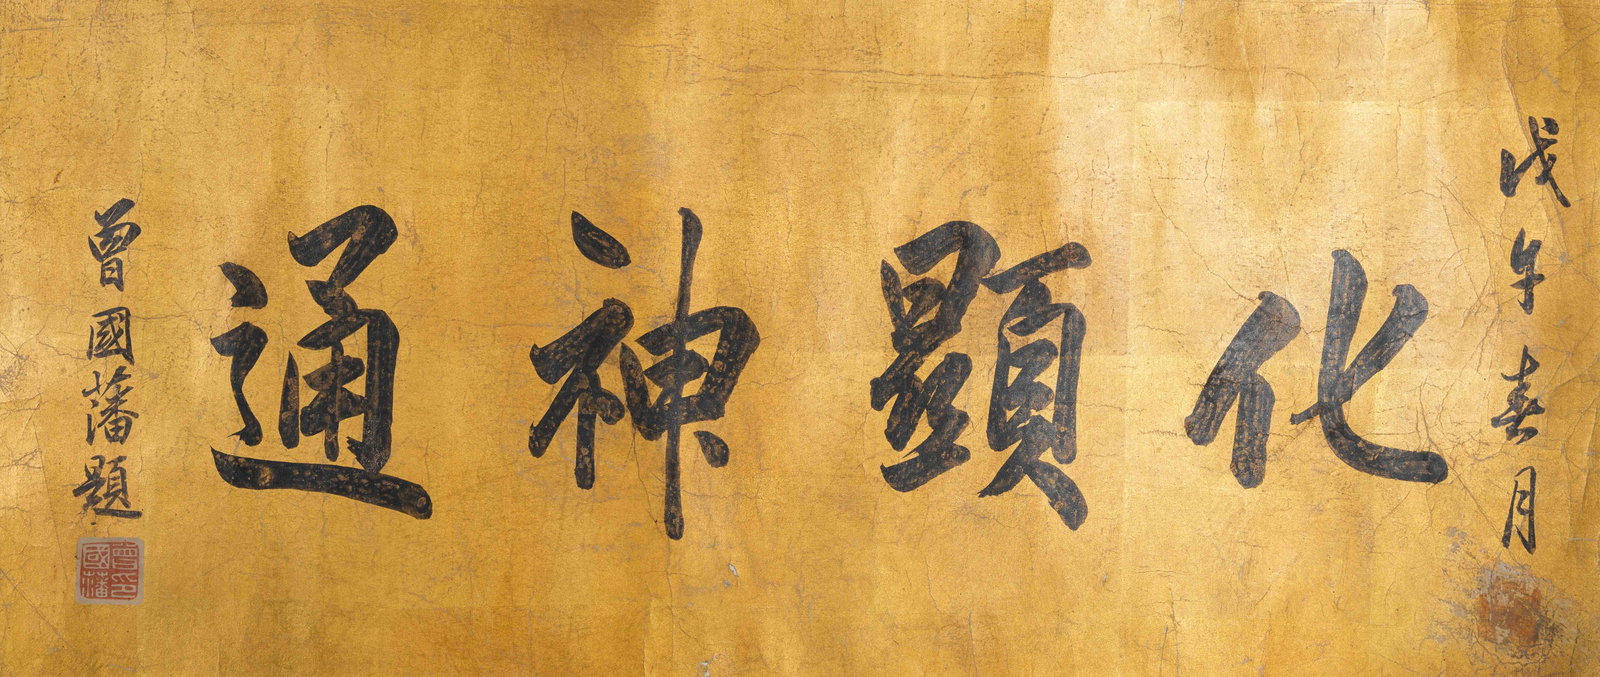 戊午春月
化顯神通
曾國藩題
曾國藩印